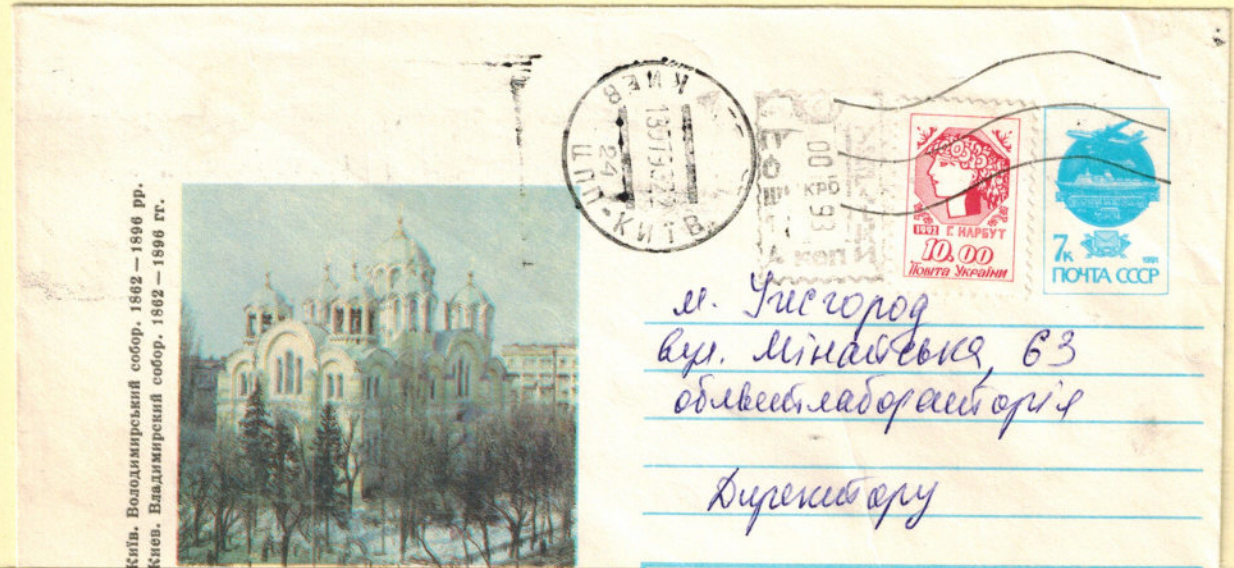 Київ. Володимирський собор. 1862—1896 рр.
Киев. Владимирский собор. 1862—1896 гг.
КИЕВ
24
ЦП-КИЇВ
00
крб
93
коп
1992 Г. НАРБУТ
10.00
Пошта України
7к 1991
ПОЧТА СССР
м. Ужгород
вул. Мінайська, 63
облветлабораторія
Директору